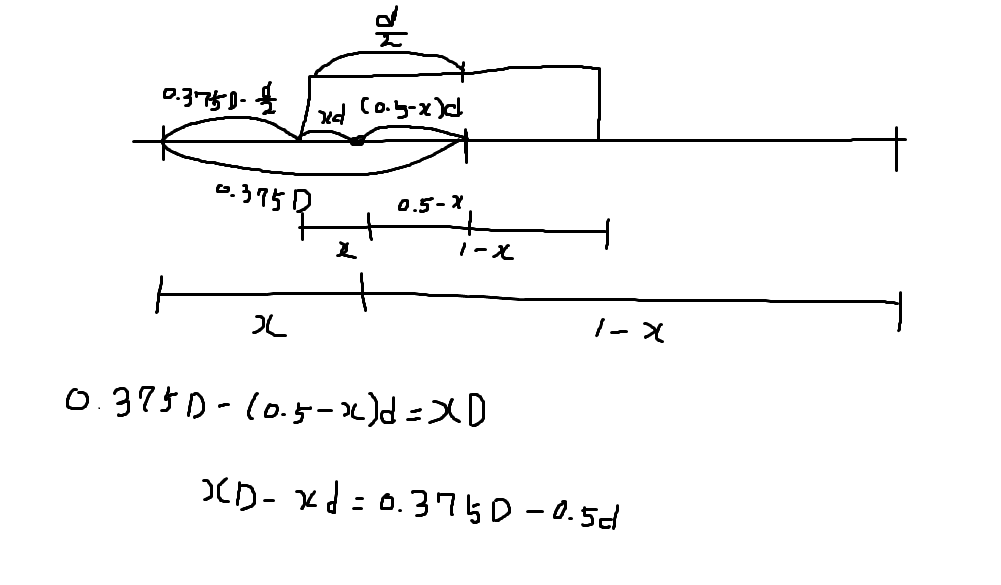 d/2
0.375D - d/2
xd (0.5-x)d
0.375D
0.5-x
x 1-x
x 1-x
0.375D-(0.5-x)d=xD
xD-xd=0.375D-0.5d